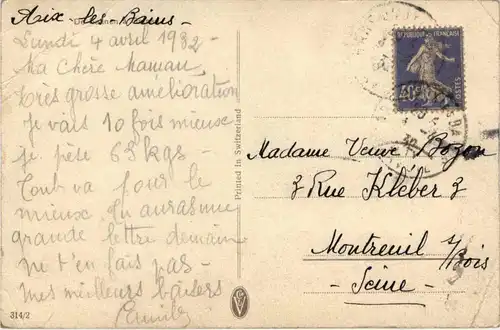 Aix les Bains -
Lundi 4 avril 1932 -
Ma Chère Maman,
Très grosse amélioration
je vais 10 fois mieux
je pèse 65 kgs -
Tout va pour le
mieux. Tu auras une
grande lettre demain
ne t'en fais pas -
Mes meilleurs baisers
314/2
Printed in Switzerland
REPUBLIQUE FRANÇAISE
40c
POSTES
Madame Veuve Bozon
3 Rue Kléber 3
Montreuil s/Bois
- Seine -